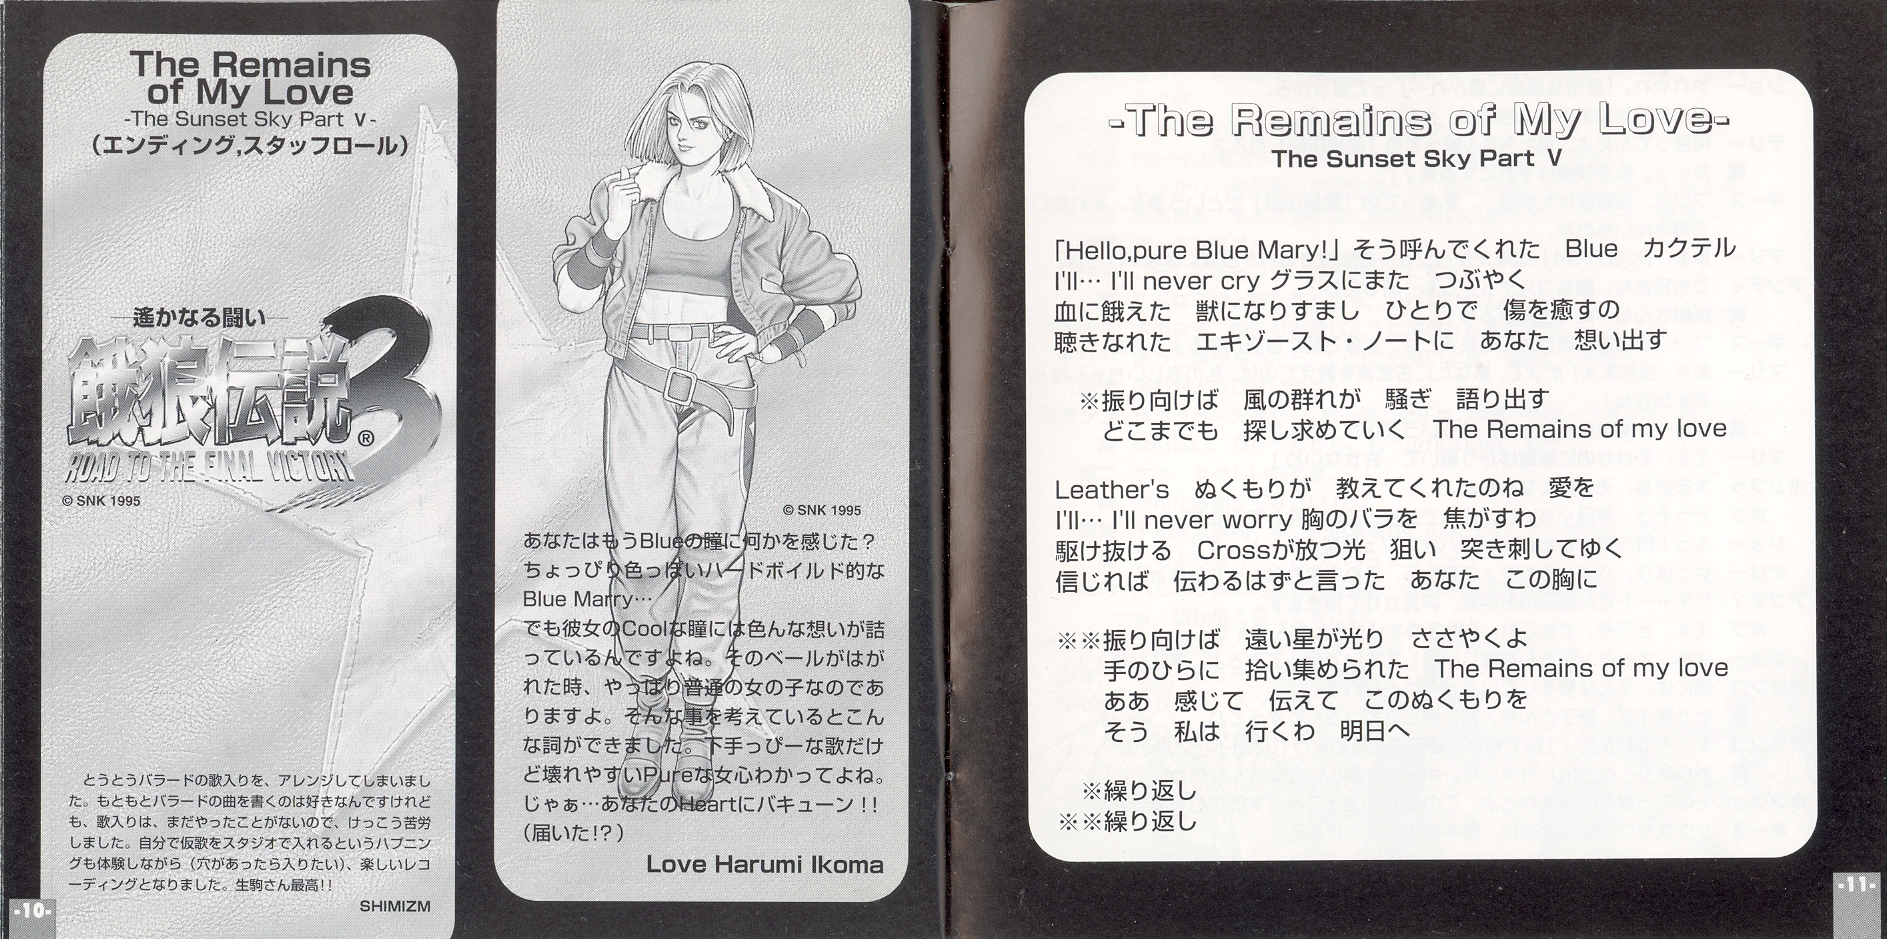 The Remains
of My Love
-The Sunset Sky Part Ⅴ-
(エンディング,スタッフロール)
─遙かなる闘い─
餓狼伝説3®
ROAD TO THE FINAL VICTORY
© SNK 1995
とうとうバラードの歌入りを、アレンジしてしまいまし
た。もともとバラードの曲を書くのは好きなんですけれど
も、歌入りは、まだやったことがないので、けっこう苦労
しました。自分で仮歌をスタジオで入れるというハプニン
グも体験しながら(穴があったら入りたい)、楽しいレコ
ーディングとなりました。生駒さん最高!!
SHIMIZM
-10-
© SNK 1995
あなたはもうBlueの瞳に何かを感じた?
ちょっぴり色っぽいハードボイルド的な
Blue Marry…
でも彼女のCoolな瞳には色んな想いが詰
っているんですよね。そのベールがはが
れた時、やっぱり普通の女の子なのであ
りますよ。そんな事を考えているとこん
な詞ができました。下手っぴーな歌だけ
ど壊れやすいPureな女心わかってよね。
じゃぁ…あなたのHeartにバキューン!!
(届いた!?)
Love Harumi Ikoma
-The Remains of My Love-
The Sunset Sky Part Ⅴ
「Hello,pure Blue Mary!」そう呼んでくれた　Blue　カクテル
I'll… I'll never cry グラスにまた　つぶやく
血に餓えた　獣になりすまし　ひとりで　傷を癒すの
聴きなれた　エキゾースト・ノートに　あなた　想い出す
※振り向けば　風の群れが　騒ぎ　語り出す
どこまでも　探し求めていく　The Remains of my love
Leather's　ぬくもりが　教えてくれたのね　愛を
I'll… I'll never worry 胸のバラを　焦がすわ
駆け抜ける　Crossが放つ光　狙い　突き刺してゆく
信じれば　伝わるはずと言った　あなた　この胸に
※※振り向けば　遠い星が光り　ささやくよ
手のひらに　拾い集められた　The Remains of my love
ああ　感じて　伝えて　このぬくもりを
そう　私は　行くわ　明日へ
※繰り返し
※※繰り返し
-11-